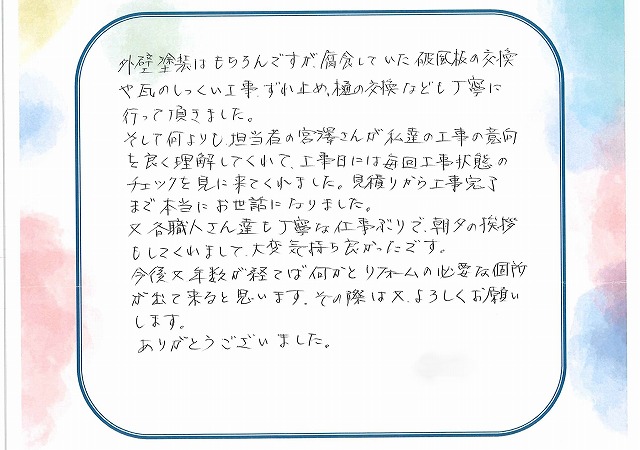 外壁塗装はもちろんですが、腐食していた破風板の交換
や瓦のしっくい工事、ずれ止め、樋の交換なども丁寧に
行って頂きました。
そして何よりも、担当者の宮澤さんが私達の工事の意向
を良く理解してくれて、工事日には毎回工事状態の
チェックを見に来てくれました。見積りから工事完了
まで本当にお世話になりました。
又各職人さん達も丁寧な仕事ぶりで、朝夕の挨拶
もしてくれまして、大変気持ち良かったです。
今後又年数が経てば何かとリフォームの必要な個所
がでて来ると思います。その際は又、よろしくお願い
します。
ありがとうございました。